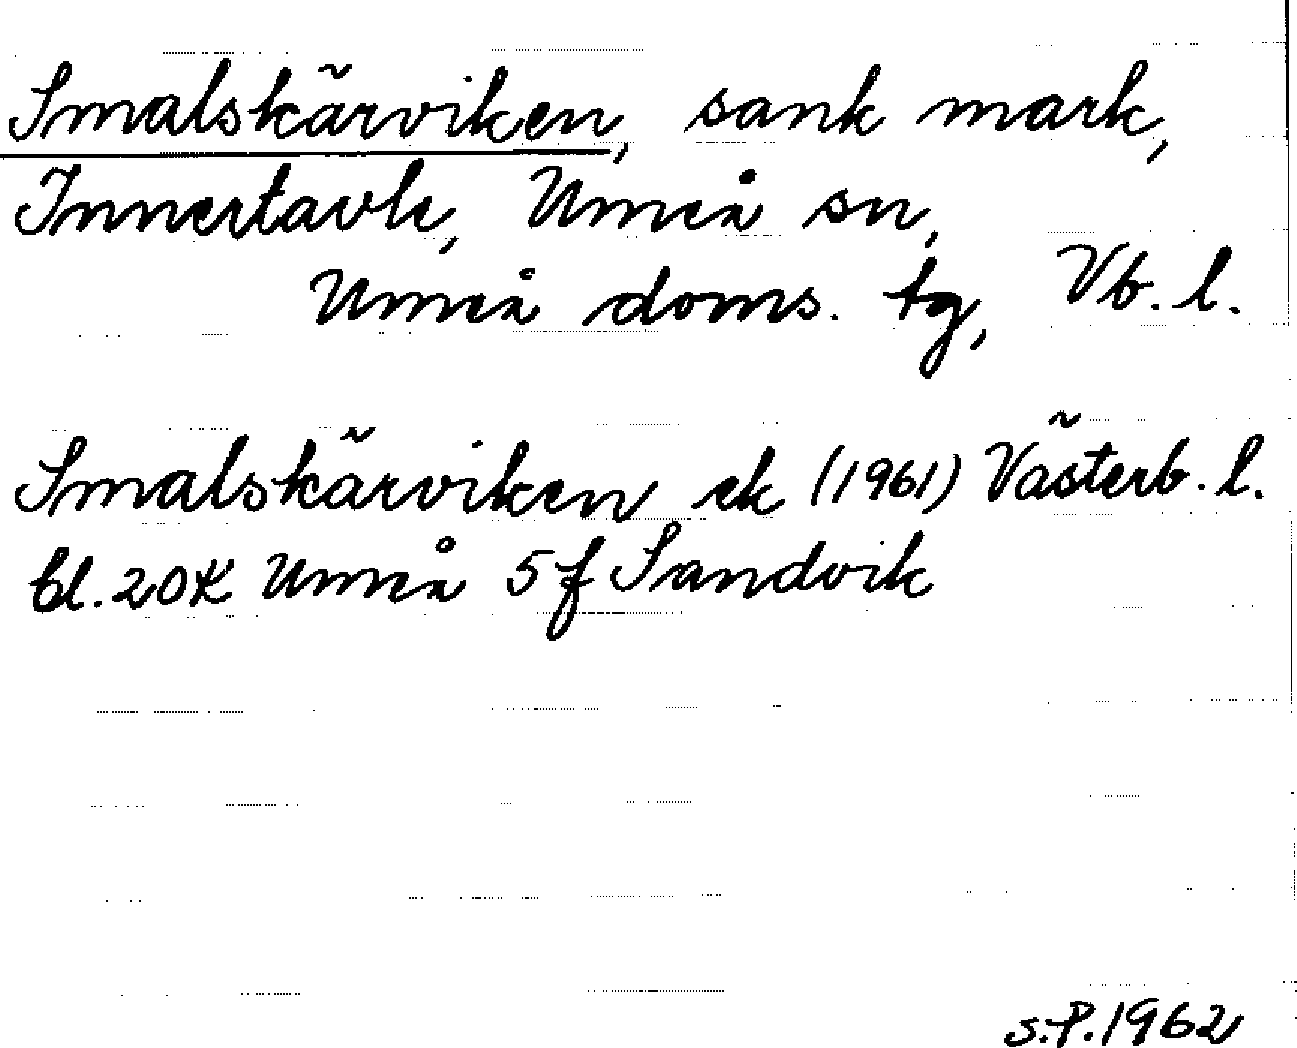 Smalskärviken, sank mark,
Innertavle, Umeå sn,
Umeå doms. tg, Vb. l.
Smalskärviken ek (1961) Västerb. l.
bl. 20K Umeå 5f Sandvik
S.P. 1962